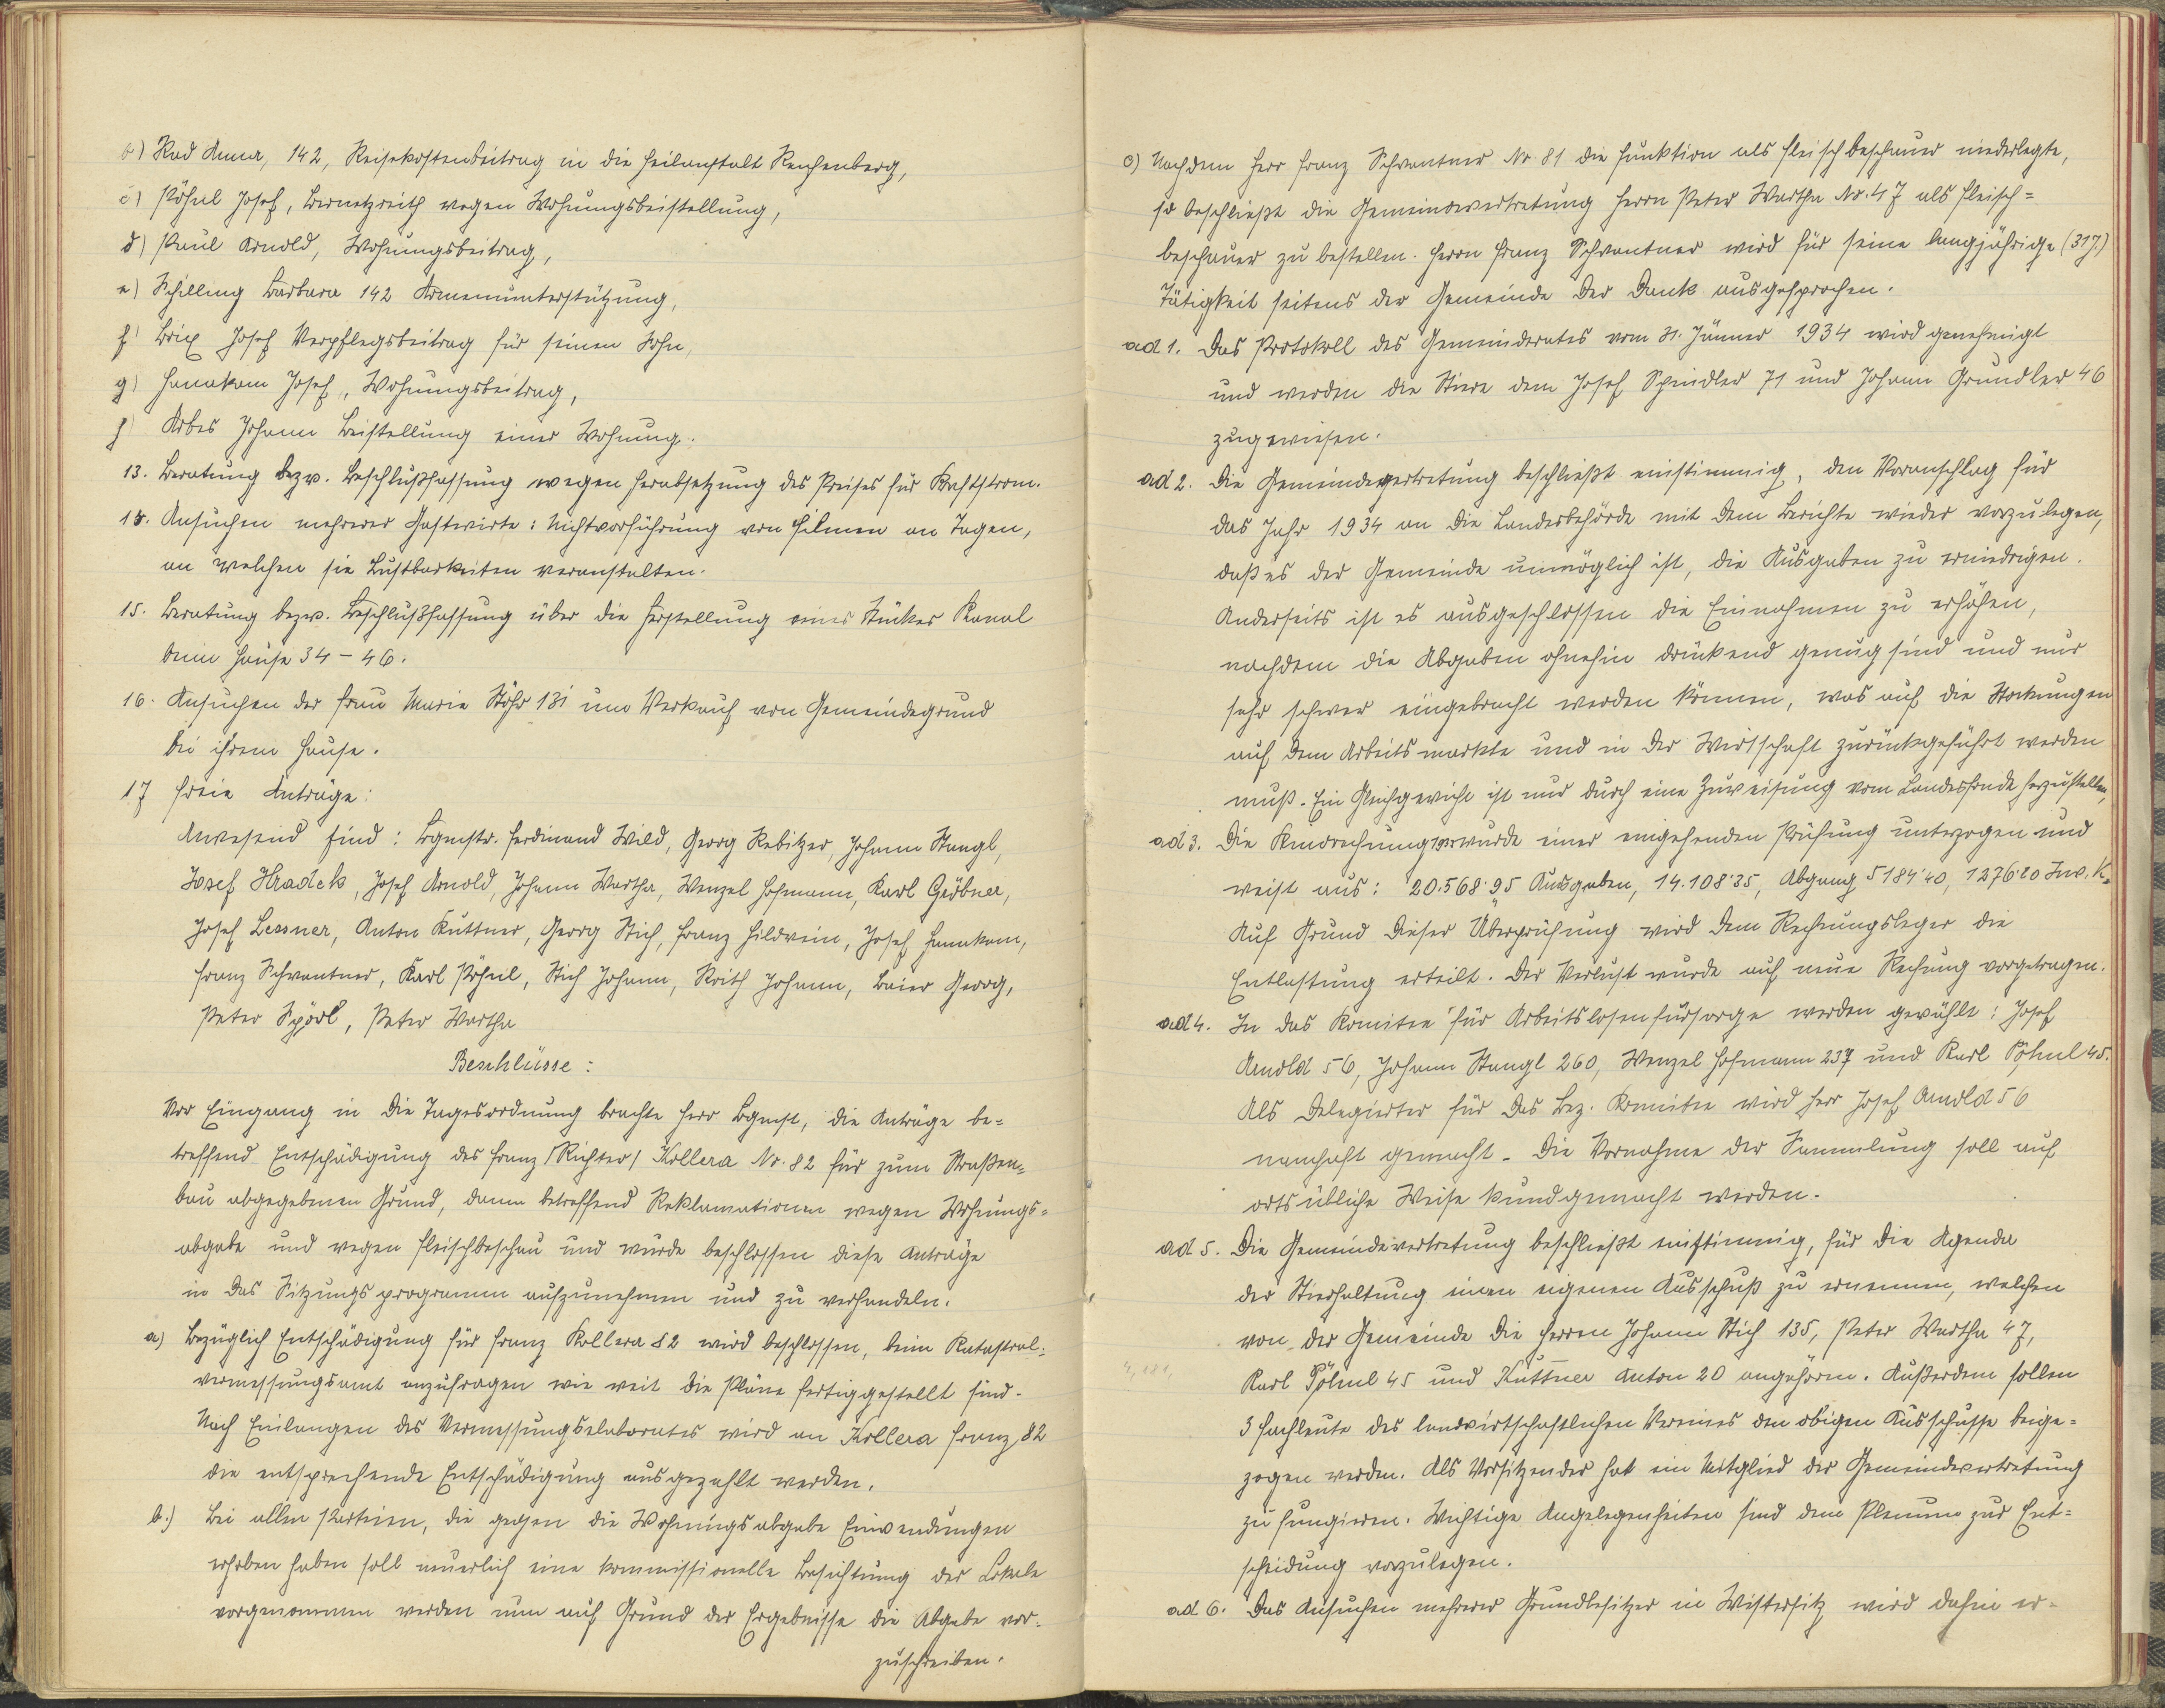 b) Rad Anna, 142, Reisekostenbeitrag in die Heilanstalt Reichenberg,
c) Pöhnl Josef, Bernetzreith wegen Wohnungsbeistellung,
d) Paul Arnold, Wohnungsbeitrag,
e) Schilling Barbara 142 Armenunterstützung,
f) Brix Josef Verpflegsbeitrag für seinen Sohn,
g) Hanakam Josef, Wohnungsbeitrag,
h) Arbes Johann Beistellung einer Wohnung.
13. Beratung bezw. Beschlußfassung wegen Herabsetzung des Preises für Kraftstrom.
14. Ansuchen mehrerer Gastwirte: Nichtvorführung von Filmen an Tagen,
an welchen sie Lustbarkeiten veranstalten.
15. Beratung bezw. Beschlußfassung über die Herstellung eines Stückes Kanal
beim Hause 34 - 46.
16. Ansuchen der Frau Marie Stöhr 131 um Verkauf von Gemeindegrund
bei ihrem Hause.
17 Freie Anträge:
Anwesend sind: Bgmstr. Ferdinand Wild, Georg Rebitzer, Johann Stangl,
Josef Hradek, Josef Arnold, Johann Wartha, Wenzel Hofmann, Karl Gröbner,
Josef Lessner, Anton Kuttner, Georg Stich, Franz Hildwein, Josef Hanakam,
Franz Schwantner, Karl Pöhnl, Stich Johann, Reith Johann, Baier Georg,
Peter Spörl, Peter Wartha
Beschlüsse:
Vor Eingang in die Tagesordnung brachte Herr Bgmst, die Anträge be=
treffend Entschädigung des Franz /Richter/ Kollera Nr. 82 für zum Straßen=
bau abgegebenen Grund, dann betreffend Reklamationen wegen Wohnungs=
abgabe und wegen Fleischbeschau und wurde beschlossen diese Anträge
in das Sitzungsprogramm aufzunehmen und zu verhandeln.
a) Bezüglich Entschädigung für Franz Kollera 82 wird beschlossen, beim Katastral=
vermessungsamt anzufragen wie weit die Pläne fertiggestellt sind.
Nach Einlangen des Vermessungselaborates wird an Kollera Franz, 82
die entsprechende Entschädigung ausgezahlt werden.
b.) Bei allen Parteien, die gegen die Wohnungsabgabe Einwendungen
erhoben haben soll neuerlich eine kommissionelle Besichtung der Lokale
vorgenommen werden um auf Grund der Ergebnisse die Abgabe vor=
zuschreiben.
c) Nachdem Herr Franz Schwantner Nr. 81 die Funktion als Fleischbeschauer niederlegte,
so beschließt die Gemeindevertretung Herrn Peter Wartha Nr. 47 als Fleisch=
beschauer zu bestellen. Herrn Franz Schwantner wird für seine langjährige (31J.)
Tätigkeit seitens der Gemeinde der Dank ausgesprochen.
ad 1. Das Protokoll des Gemeinderates vom 31. Jänner 1934 wird genehmigt
und werden die Stiere dem Josef Spindler 71 und Johann Grundler 46
zugewiesen.
ad 2. Die Gemeindevertretung beschließt einstimmig, den Voranschlag für
das Jahr 1934 an die Landesbehörde mit dem Berichte wieder vorzulegen,
daß es der Gemeinde unmöglich ist, die Ausgaben zu erniedrigen.
Anderseits ist es ausgeschlossen die Einnahmen zu erhöhen,
nachdem die Abgaben ohnehin drückend genug sind und nur
sehr schwer eingebracht werden können, was auf die Stockungen
auf dem Arbeitsmarkte und in der Wirtschaft zurückgeführt werden
muß. Ein Gleichgewicht ist nur durch eine Zuweisung vom Landesfonde herzustellen,
ad 3. Die Kinorechnung 1933 wurde einer eingehenden Prüfung unterzogen und
weist aus: 20.568'95 Ausgaben, 14.108'35, Abgang 5184'40, 1276'20 Inv. K.
Auf Grund dieser Überprüfung wird dem Rechnungsleger die
Entlastung erteilt. Der Verlust wurde auf neue Rechnung vorgetragen.
ad 4. In das Komitee für Arbeitslosenfürsorge werden gewählt: Josef
Arnold 56, Johann Stangl 260, Wenzel Hofmann 237 und Karl Pöhnl 45.
Als Delegierter für das Bez. Komitee wird Herr Josef Arnold 56
namhaft gemacht. Die Vornahme der Sammlung soll auf
ortsübliche Weise kundgemacht werden.
ad 5. Die Gemeindevertretung beschließt einstimmig, für die Agenda
der Stierhaltung einen eigenen Ausschuß zu ernennen, welchen
von der Gemeinde die Herren Johann Stich 135, Peter Wartha 47,
Karl Pöhnl 45 und Kuttner Anton 20 angehören. Außerdem sollen
3 Fachleute des landwirtschaftlichen Vereines den obigen Ausschusse beige=
zogen werden. Als Vorsitzender hat ein Mitglied der Gemeindevertretung
zu fungieren. Wichtige Angelegenheiten sind dem Plenum zur Ent=
scheidung vorzulegen.
ad 6. Das Ansuchen mehrerer Grundbesitzer in Wistersitz wird dahin er=